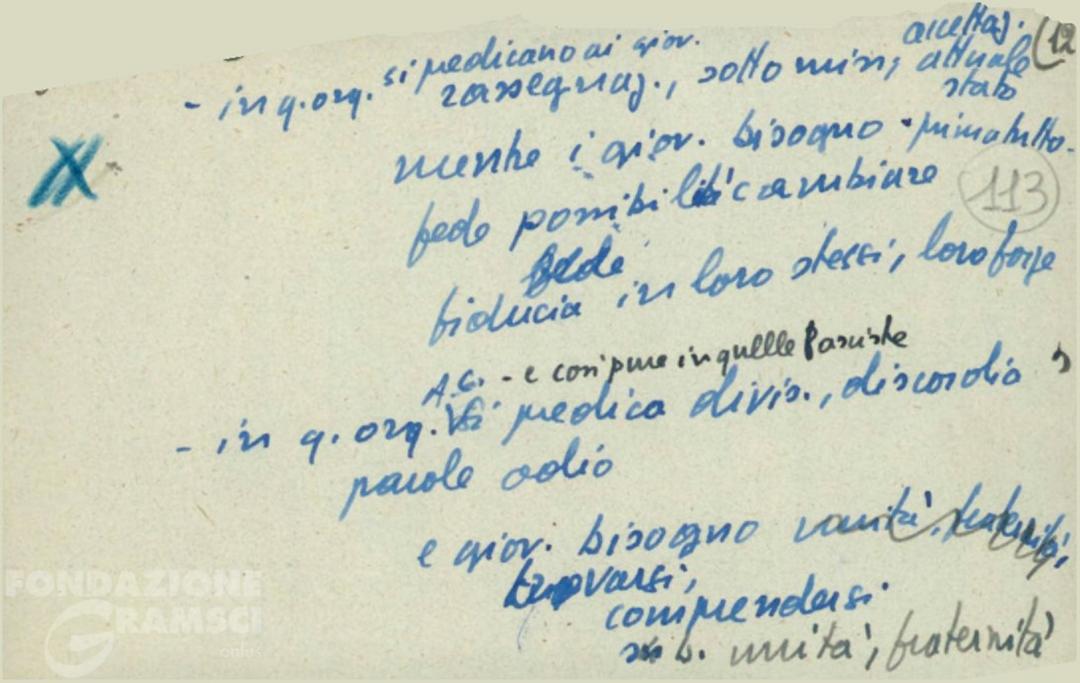 accettaz. (12
si predicano ai giov.
- in q. org. rassegnaz., sottomis., attuale
stato
X
mentre i giov. bisogno - primatutto -
113
fede possibilità cambiare
fede
fiducia in loro stessi, loro forze
A.C. - e così pure in quelle fasciste
- in q. org. si predica divis., discordia
parole odio
e giov. bisogno unità, fraternità,
trovarsi,
comprendersi.
b. unità, fraternità
FONDAZIONE
GRAMSCI
onlus